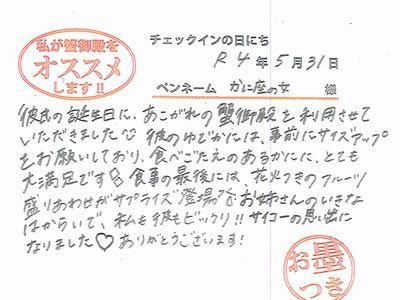 私が蟹御殿を
オススメ
します!!
チェックインの日にち
R4年5月31日
ペンネーム かに座の女 様
彼氏の誕生日に、あこがれの蟹御殿を利用させて
いただきました 彼のゆでがには、事前にサイズアップ
をお願いしており、食べごたえのあるかにに、とても
大満足です 食事の最後には、花火つきのフルーツ
盛りあわせがサプライズ登場 お姉さんのいきな
はからいで、私も彼もビックリ!! サイコーの思い出に
なりました♡ ありがとうございます!
お墨
つき